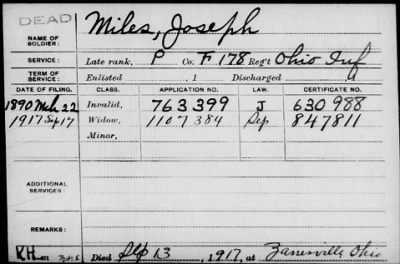 DEAD
NAME OF SOLDIER: Miles, Joseph
SERVICE: Late rank, P Co. F 178 Reg't Ohio Inf
TERM OF SERVICE: Enlisted , 1 Discharged , 1
DATE OF FILING. CLASS. APPLICATION NO. LAW. CERTIFICATE NO.
1890 Mch 22 Invalid, 763399 J 630988
1917 17 Widow, 1107384 Sep 847811
Minor,
ADDITIONAL SERVICES:
REMARKS:
Died Sep 13, 1917, at Zanesville Ohio